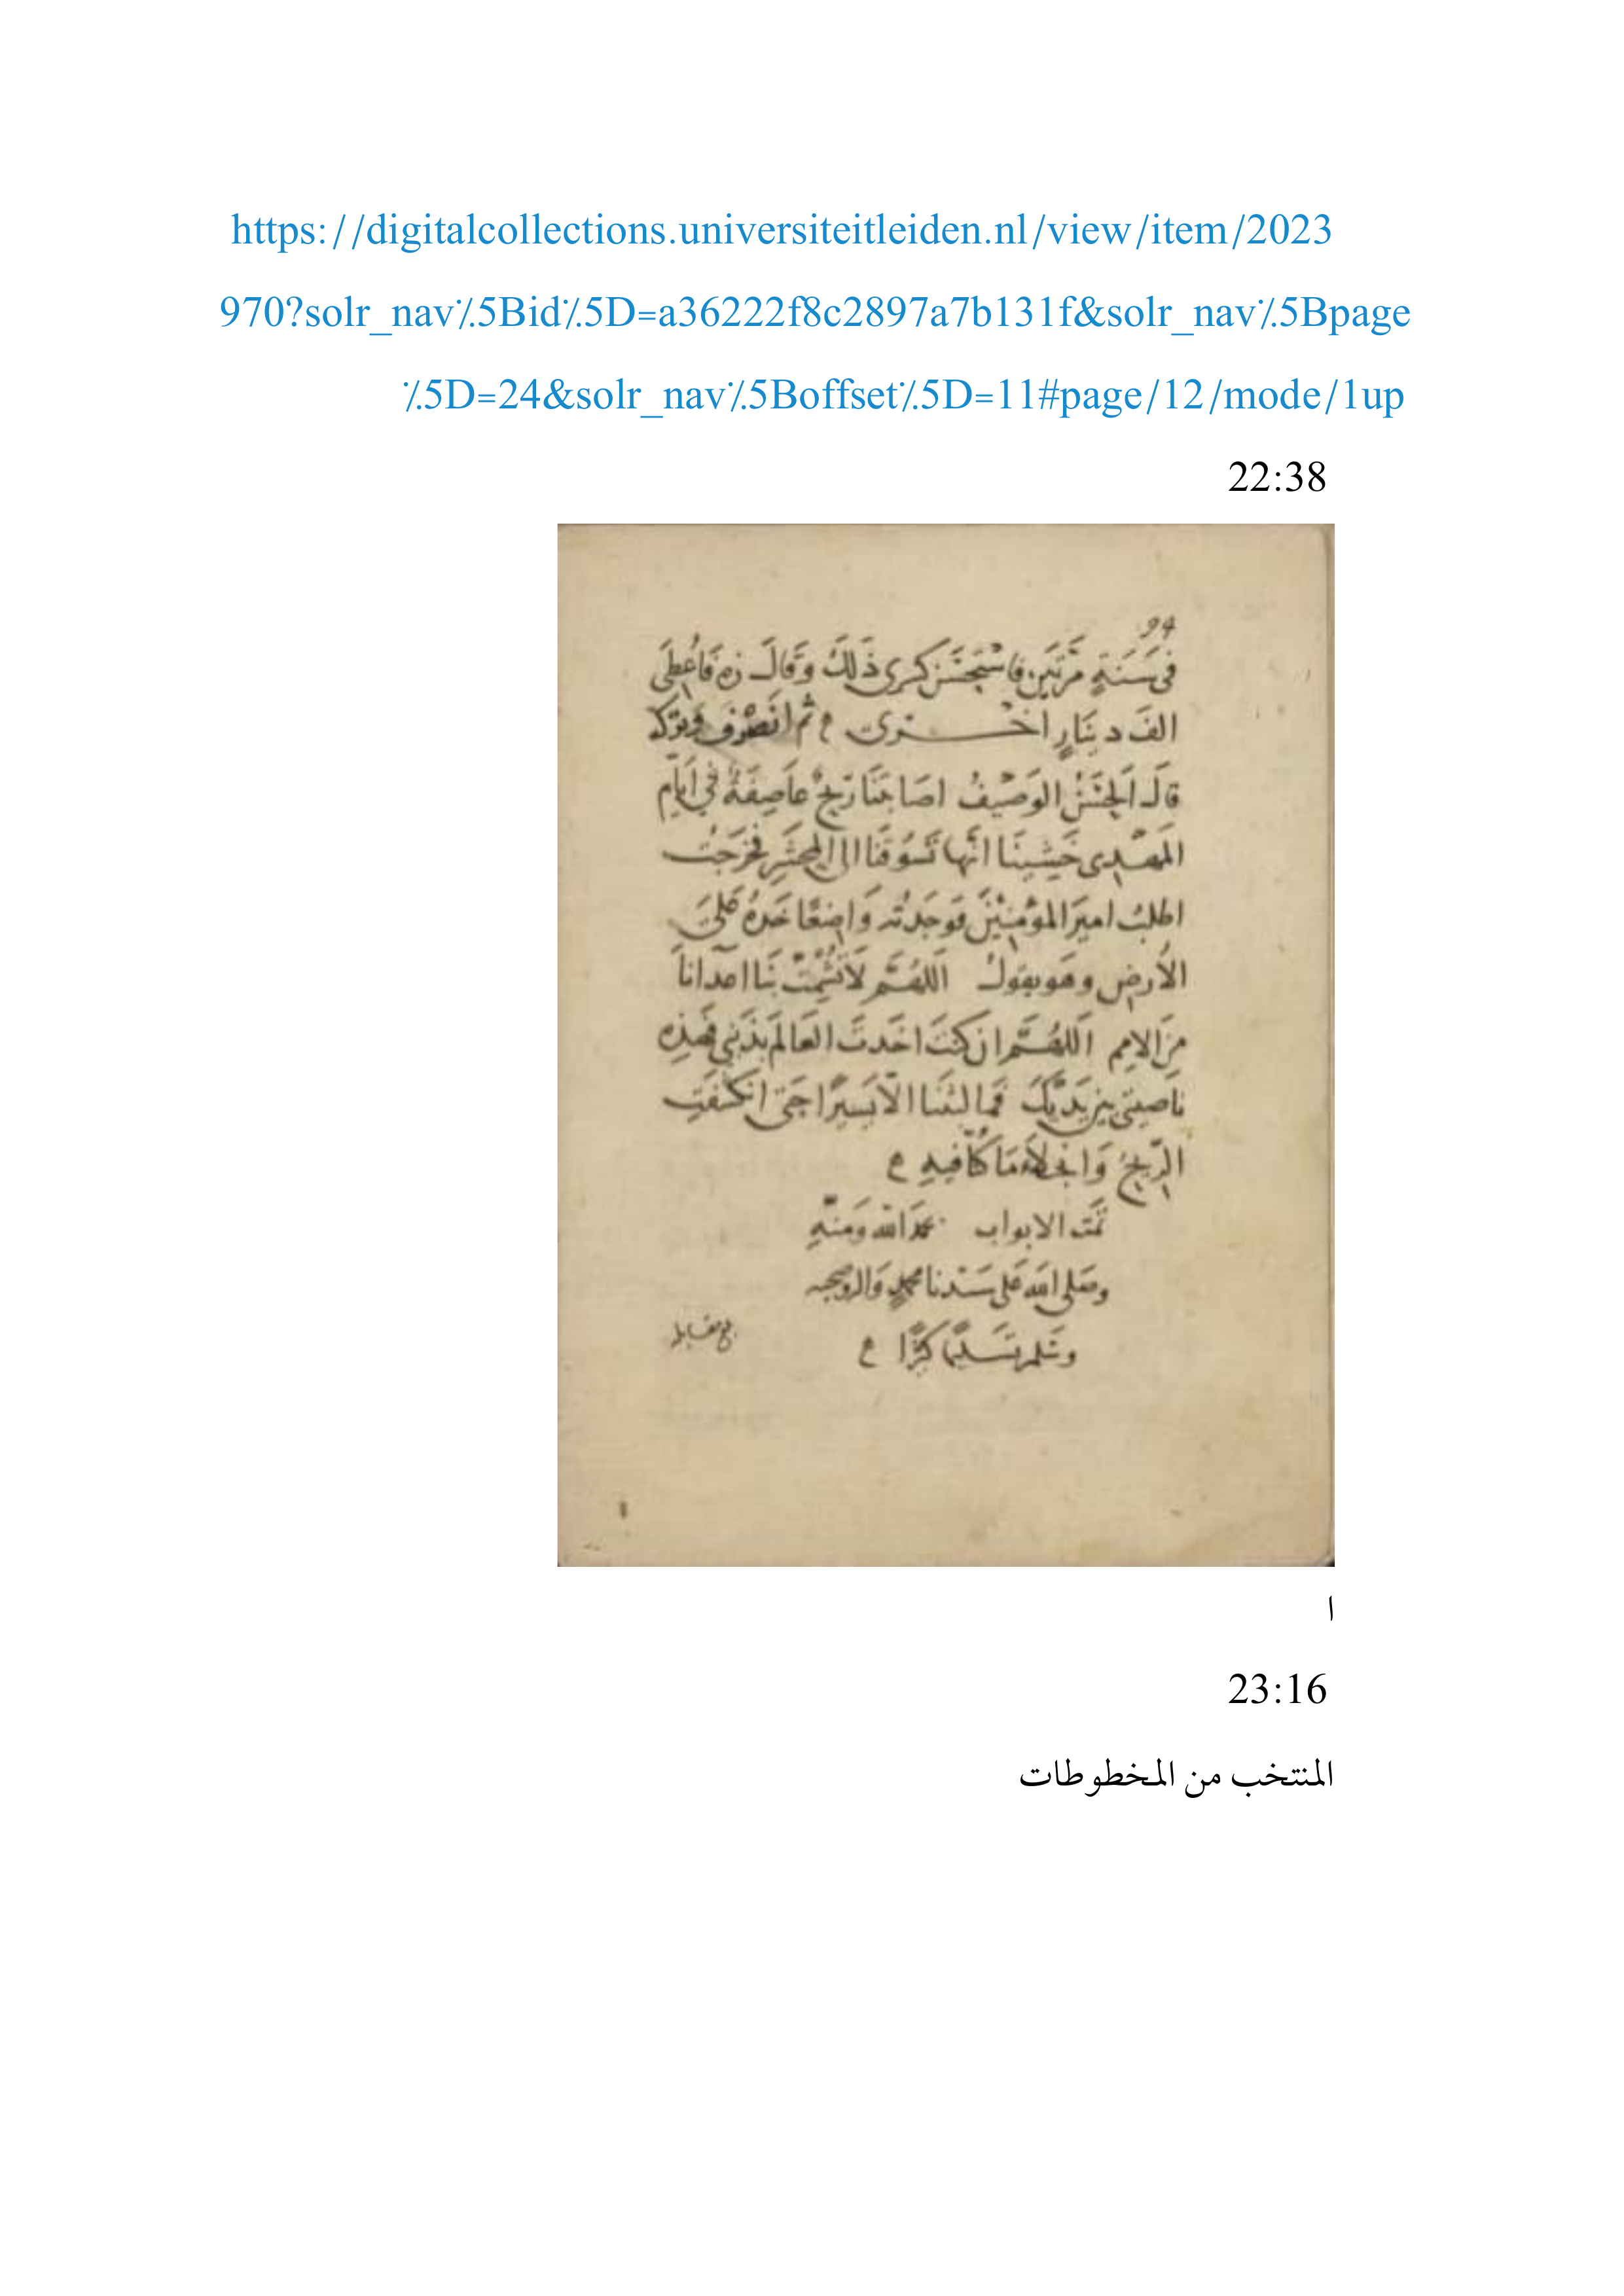 https://digitalcollections.universiteitleiden.nl/view/item/2023
970?solr_nav٪5Bid٪5D=a36222f8c2897a7b131f&solr_nav٪5Bpage
٪5D=24&solr_nav٪5Boffset٪5D=11#page/12/mode/1up
22:38
94
فى سَنَةٍ مرّتَين فاستحسَن كسرى ذَلكَ وَقالَ زه فَاُعطَى
الفَ دينَارٍ اخرى ثم انصَرفَ وتركه
قالَ الحسَنُ الوَصيفُ اصَابتنَا ريحٌ عَاصِفَةٌ فى ايَام
المَهدى خَشِينَا انَّها تَسُوقنَا الى المحشَرِ فخرَجتُ
اطلبُ اميرَ المؤمنِيْنَ فوَجَدتُه وَاضِعًا خَدهُ عَلىَ
الأرضِ وهَو يقولُ اَللهُمَّ لاَ تُشْمِتْ بنَا اعدَاناَ
مِنَ الامِم اَللهُمَّ ان كنتَ اخَذتَ العَالمَ بذَنبى فهَذِه
ناصيتى بينَ يَدَيكَ فمَا لبثنَا الاّ يَسيرًا حَتى انكشفَتِ
الرّيحُ وَانجلاَ مَا كُنّا فيهِ
تمَّت الابواب بحمَد اللّه وَمنّهِ
وصَلى اللهَ عَلى سَيّدنا محمدٍ وَاله وصَحبه
وسَلم تسَليمًا كثيرًا
ا
23:16
المنتخب من المخطوطات